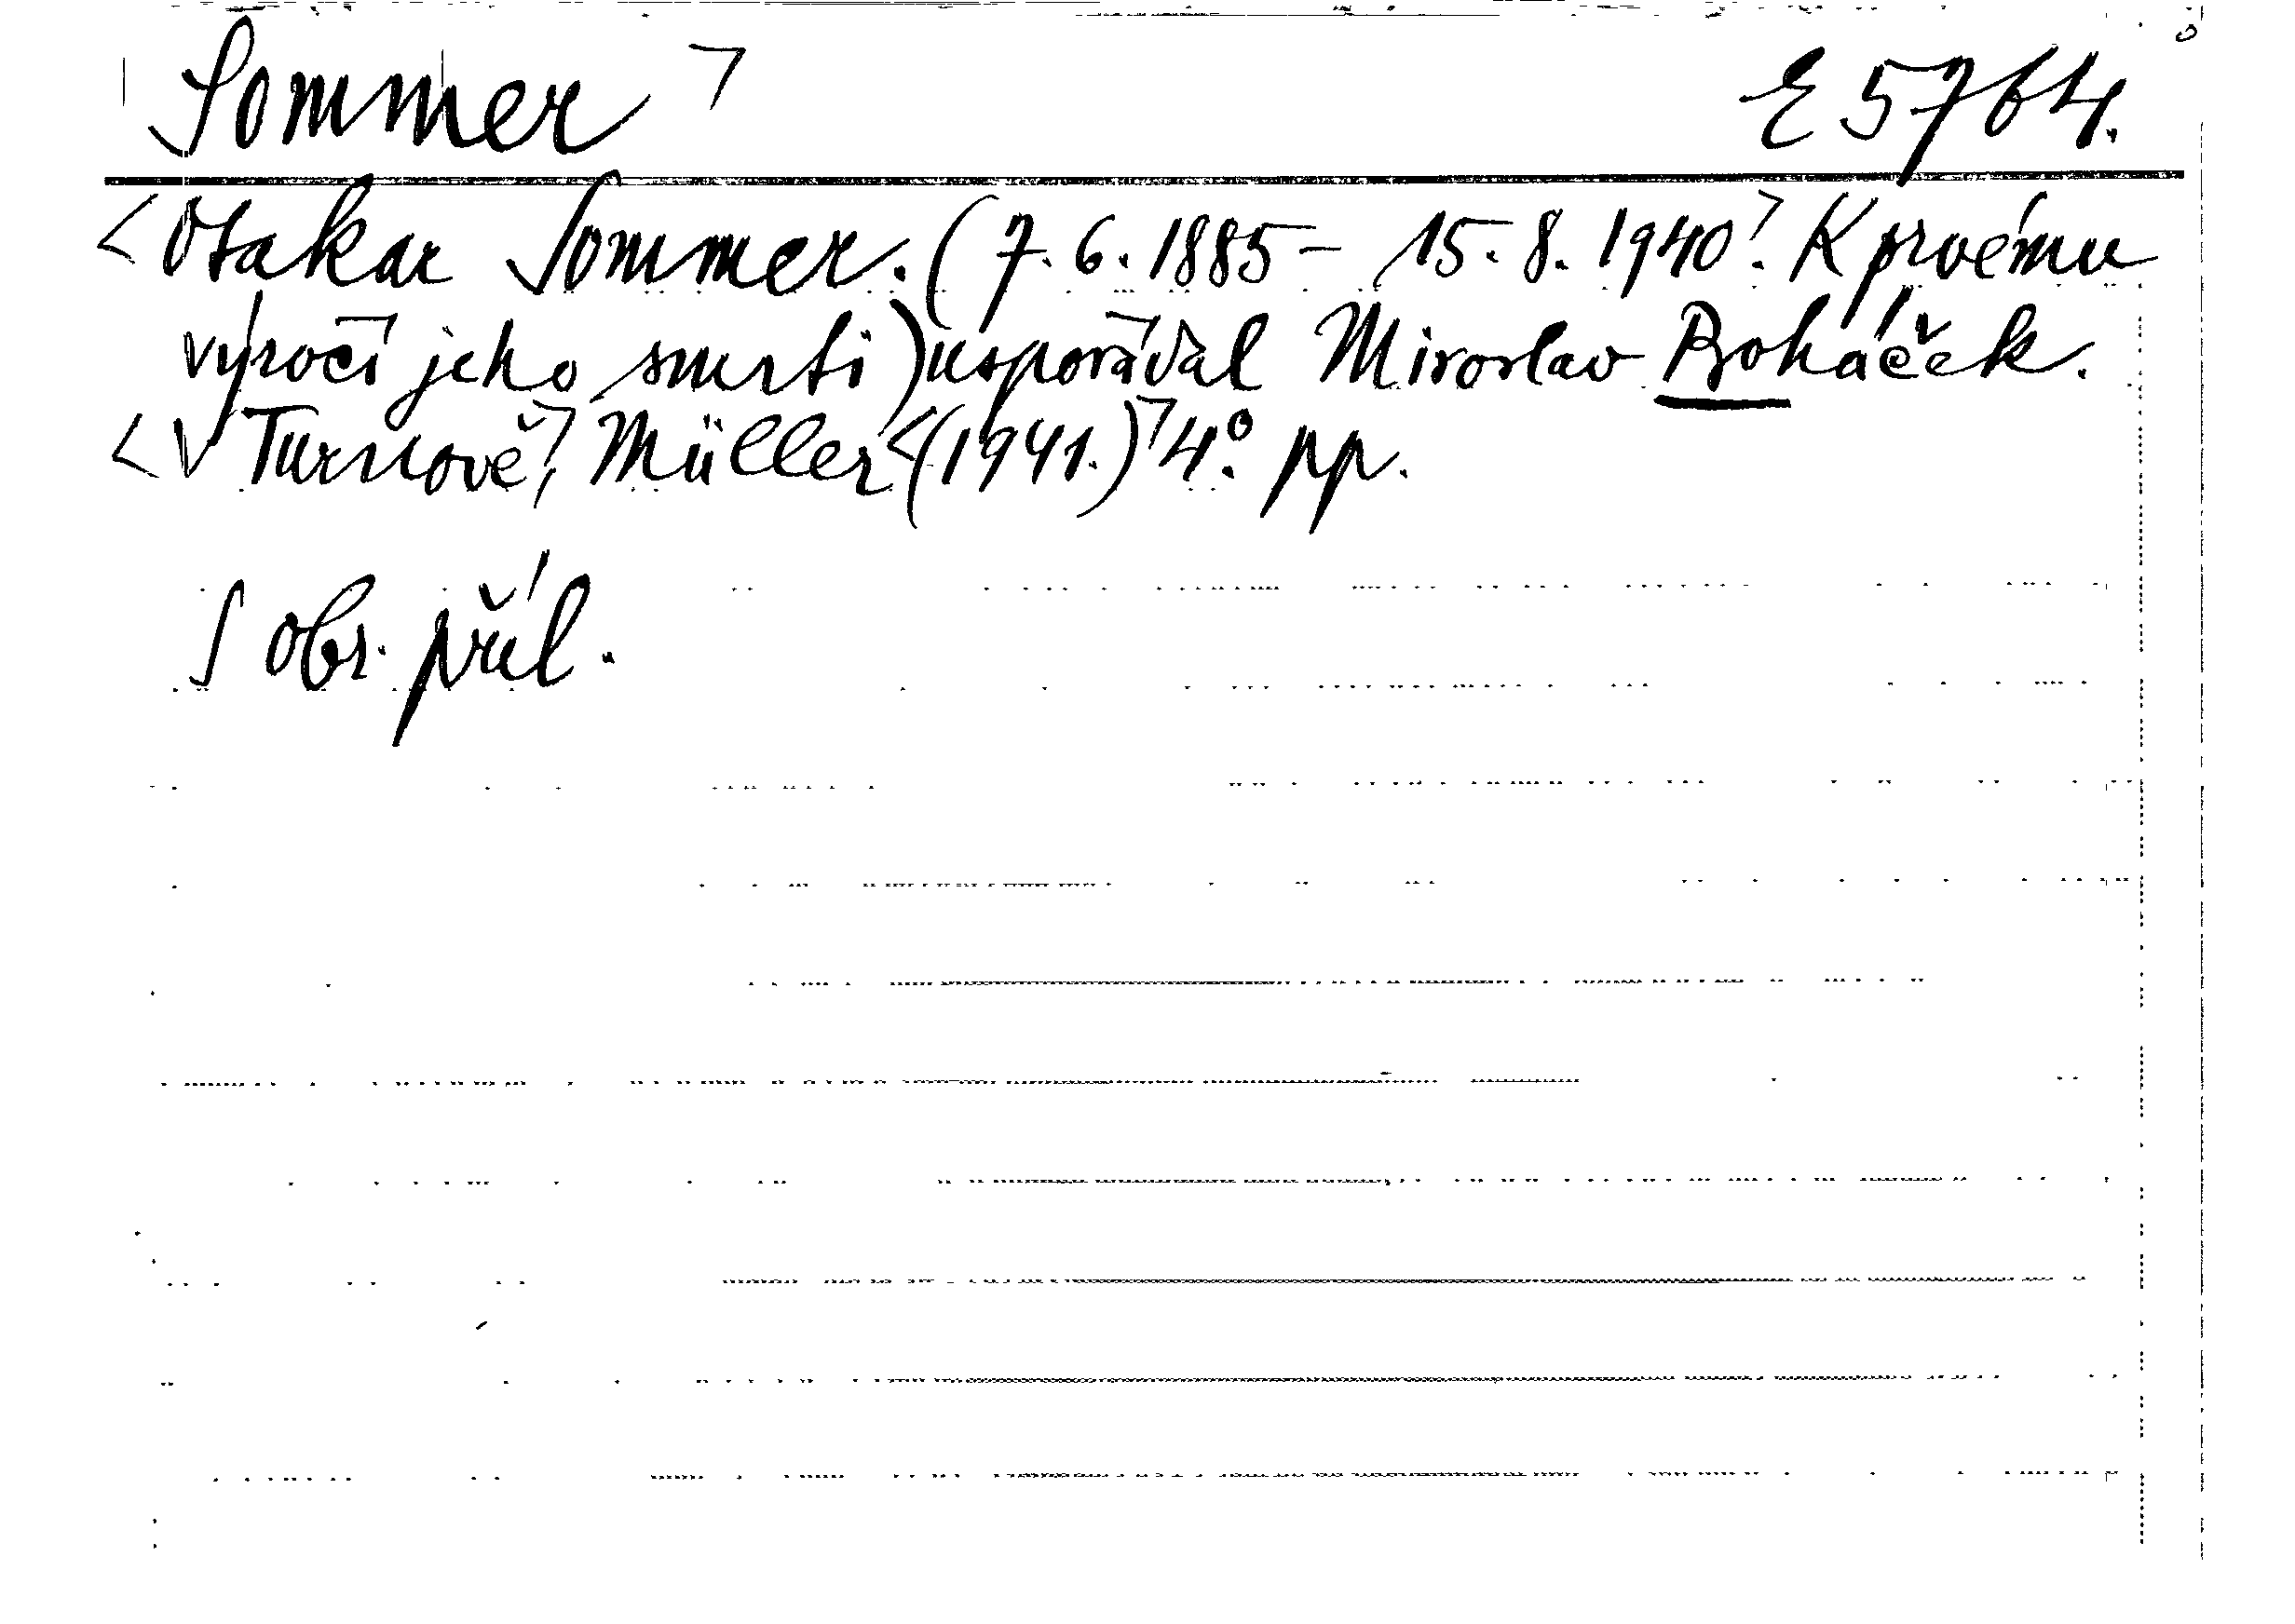 Sommer ⌝ E 5764.
<Otakar Sommer. (7. 6. 1885 - 15. 8. 1940⌝. K prvému
výročí jeho smrti) uspořádal Miroslav Boháček.
<V Turnově,⌝ Müller <(1941.)⌝ 4°. pp.
S obr. příl.